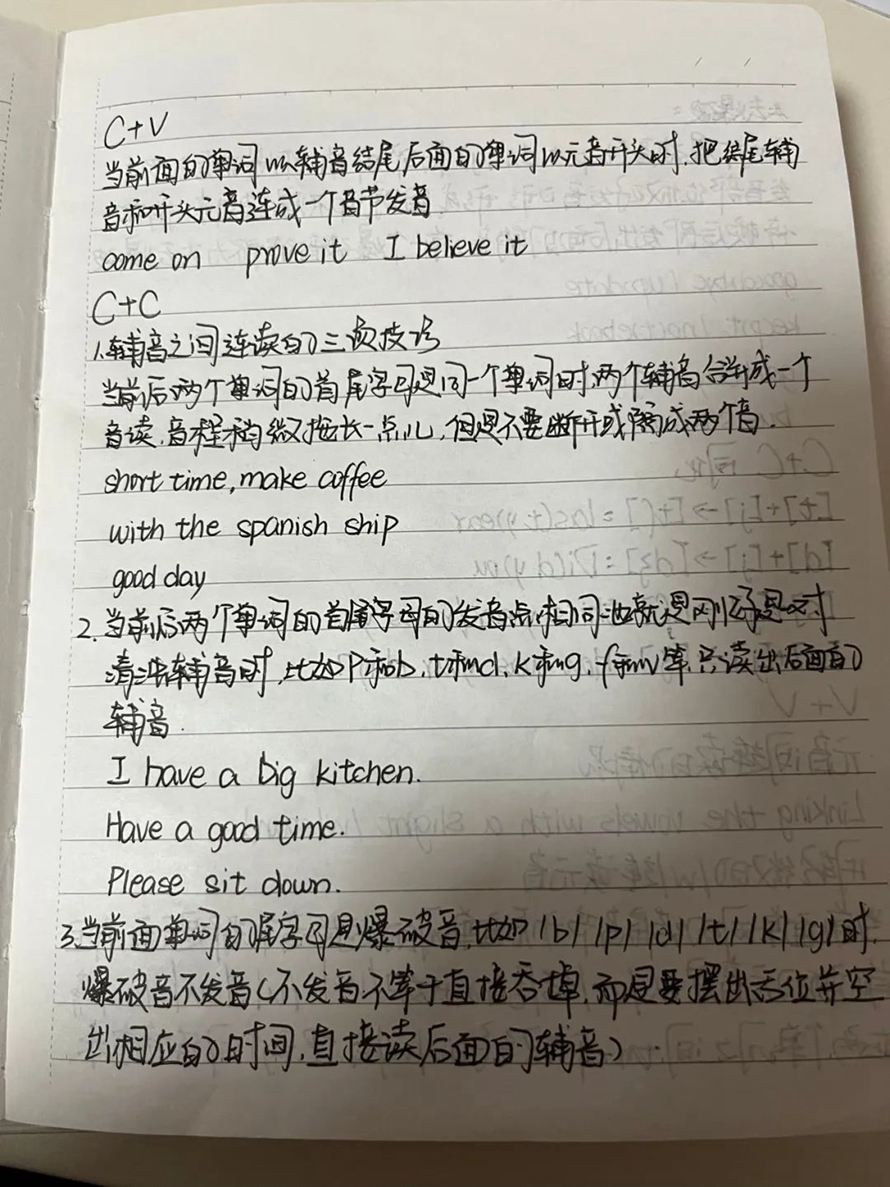 C+V
当前面的单词以辅音结尾后面的单词以元音开头时,把结尾辅
音和开头元音连成一个音节发音
come on prove it I believe it
C+C
1.辅音之间连读的三项技巧
当前后两个单词的首尾字母是同一个单词时,两个辅音合并成一个
音读,音程稍微拖长一点儿,但是不要断开或隔成两个音.
short time, make coffee
with the spanish ship
good day
2.当前后两个单词的首尾字母的发音点相同也就是刚好是一对
清浊辅音时,比如p和b、t和d、k和g、f和v等,只读出后面的
辅音.
I have a big kitchen.
Have a good time.
Please sit down.
3.当前面单词的尾字母是爆破音,比如/b/ /p/ /d/ /t/ /k/ /g/时,
爆破音不发音(不发音不等于直接吞掉,而是要摆出舌位并空
出相应的时间,直接读后面的辅音)